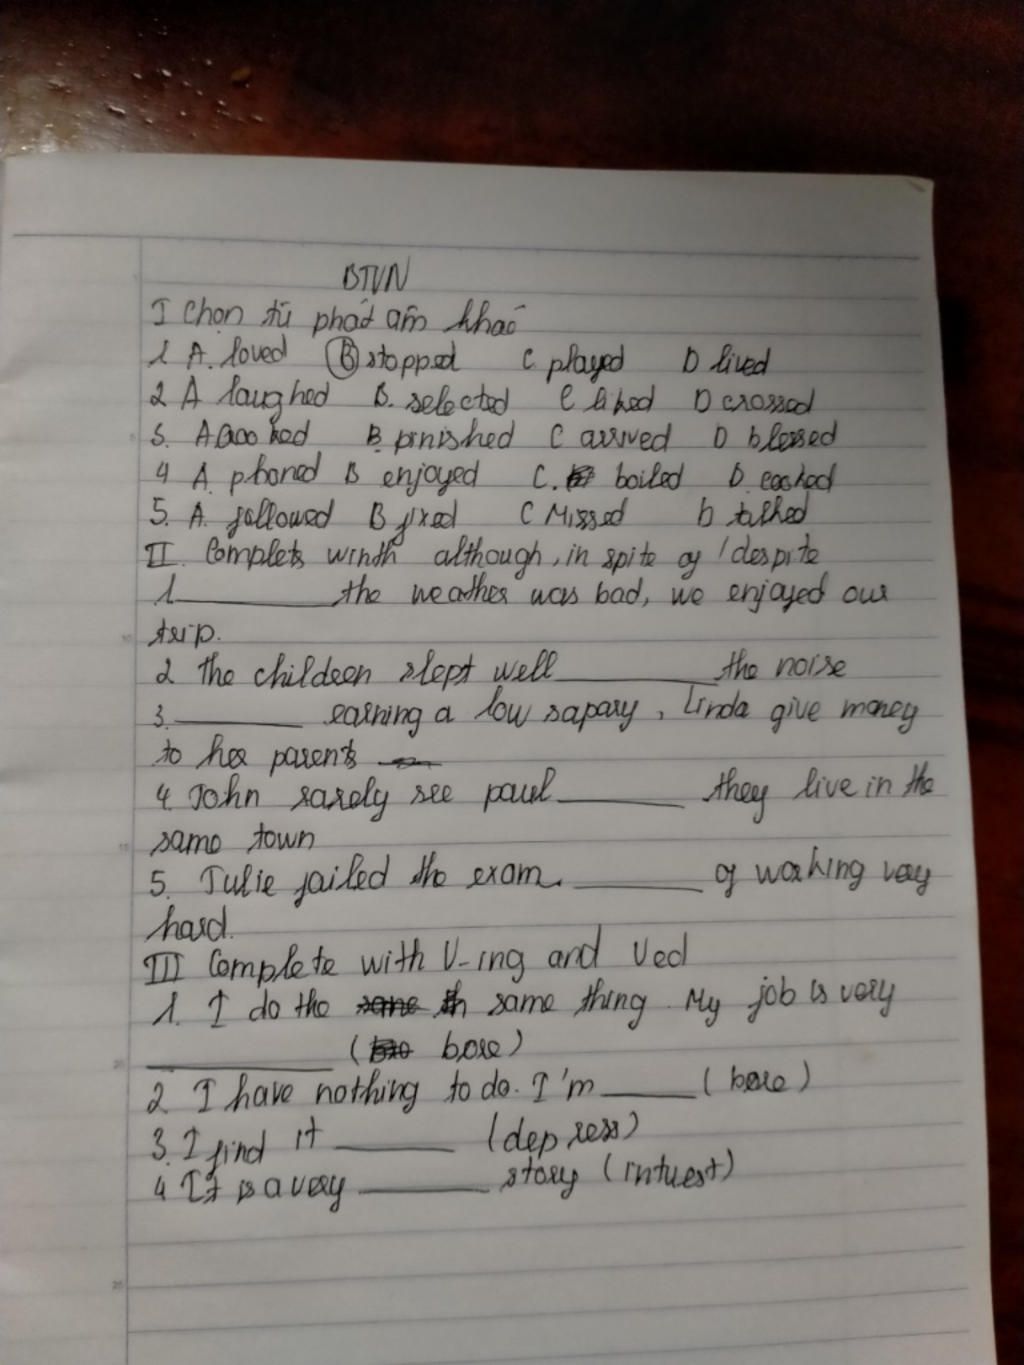 BTVN
I Chọn từ phát âm khác
1 A. loved B stopped C played D lived
2 A laughed B. selected C liked D crossed
3. A cooked B. pinished C arrived D blessed
4 A. phoned B enjoyed C. boiled D. cooked
5. A. followed B fixed C Missed D talked
II. Complete winth although, in spite of / despite
1. ________ the weather was bad, we enjoyed our
trip.
2 the children slept well ________ the noise
3. ________ earning a low sapary, Linda give money
to her parents
4. John rarely see paul ________ they live in the
same town
5. Julie failed the exam. ________ of working very
hard.
III Complete with V-ing and Ved
1. I do the same thing. My job is very
________ ( bore)
2 I have nothing to do. I'm ________ (bore)
3. I find it ________ (depress)
4 It is a very ________ story (intuest)